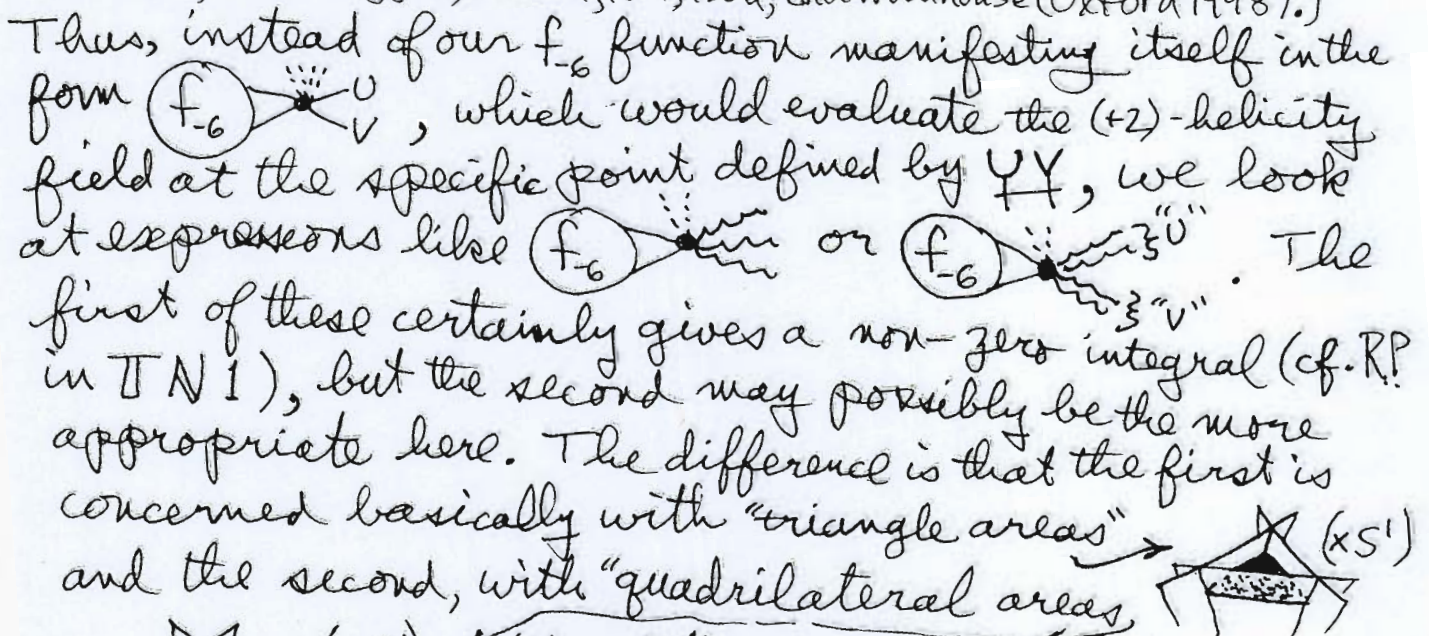 (Oxford 1998).)
Thus, instead of our f₋₆ function manifesting itself in the
form f₋₆ U V, which would evaluate the (+2)-helicity
field at the specific point defined by UV, we look
at expressions like f₋₆ or f₋₆ "U" "V". The
first of these certainly gives a non-zero integral (cf. R.P.
in TN1), but the second may possibly be the more
appropriate here. The difference is that the first is
concerned basically with "triangle areas"
(×S¹)
and the second, with "quadrilateral areas